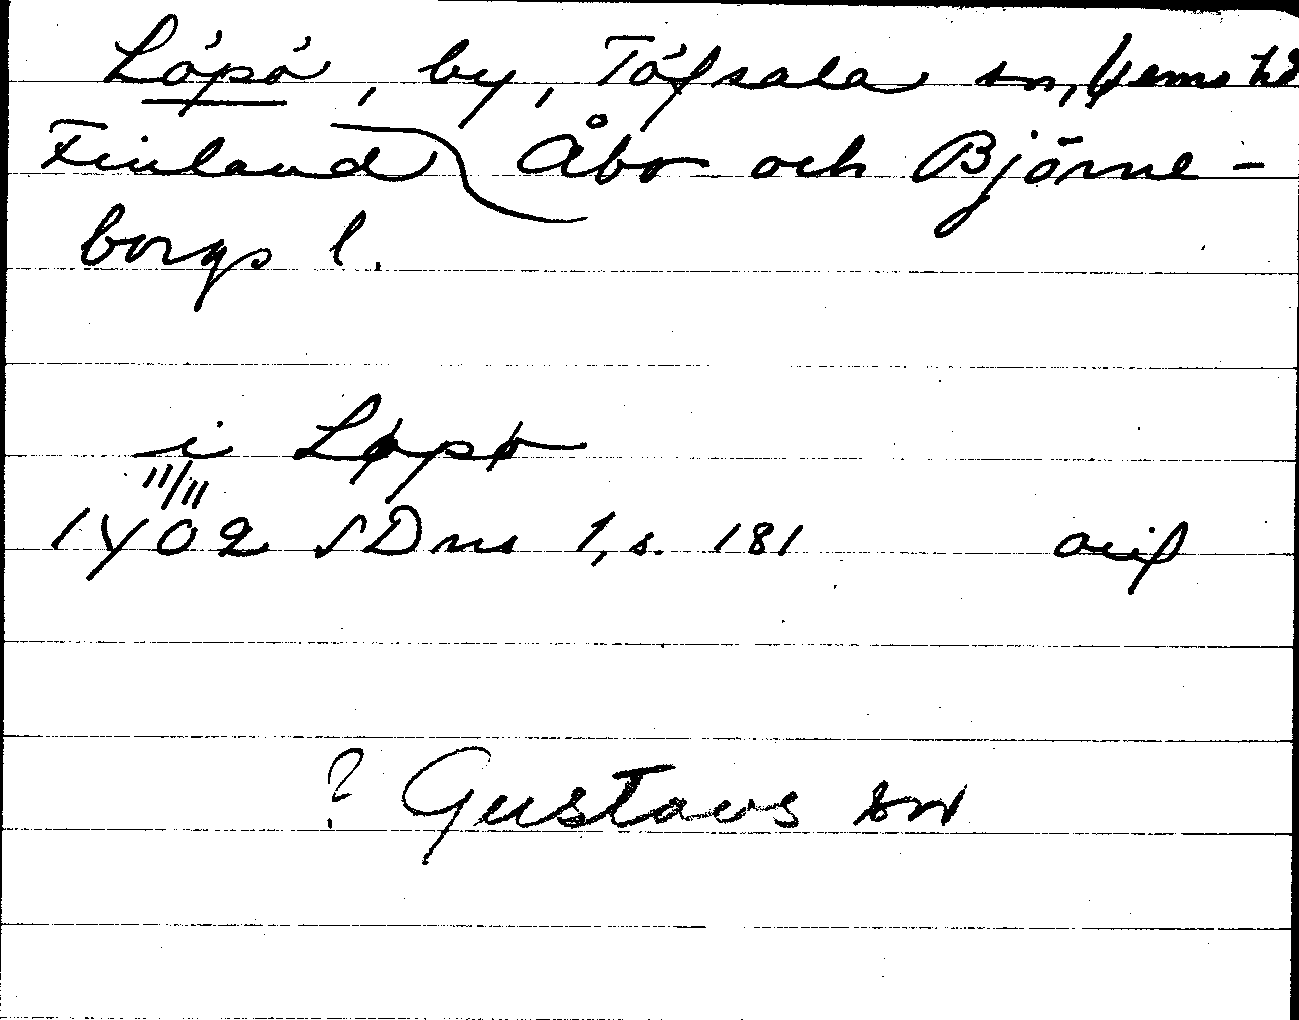 Löpö, by, Töfsala sn, Vemo hd
Finland Åbo och Björne-
borgs l.
i Løpø
11/11
1402 SDns 1, s. 181 avi
? Gustavs sn